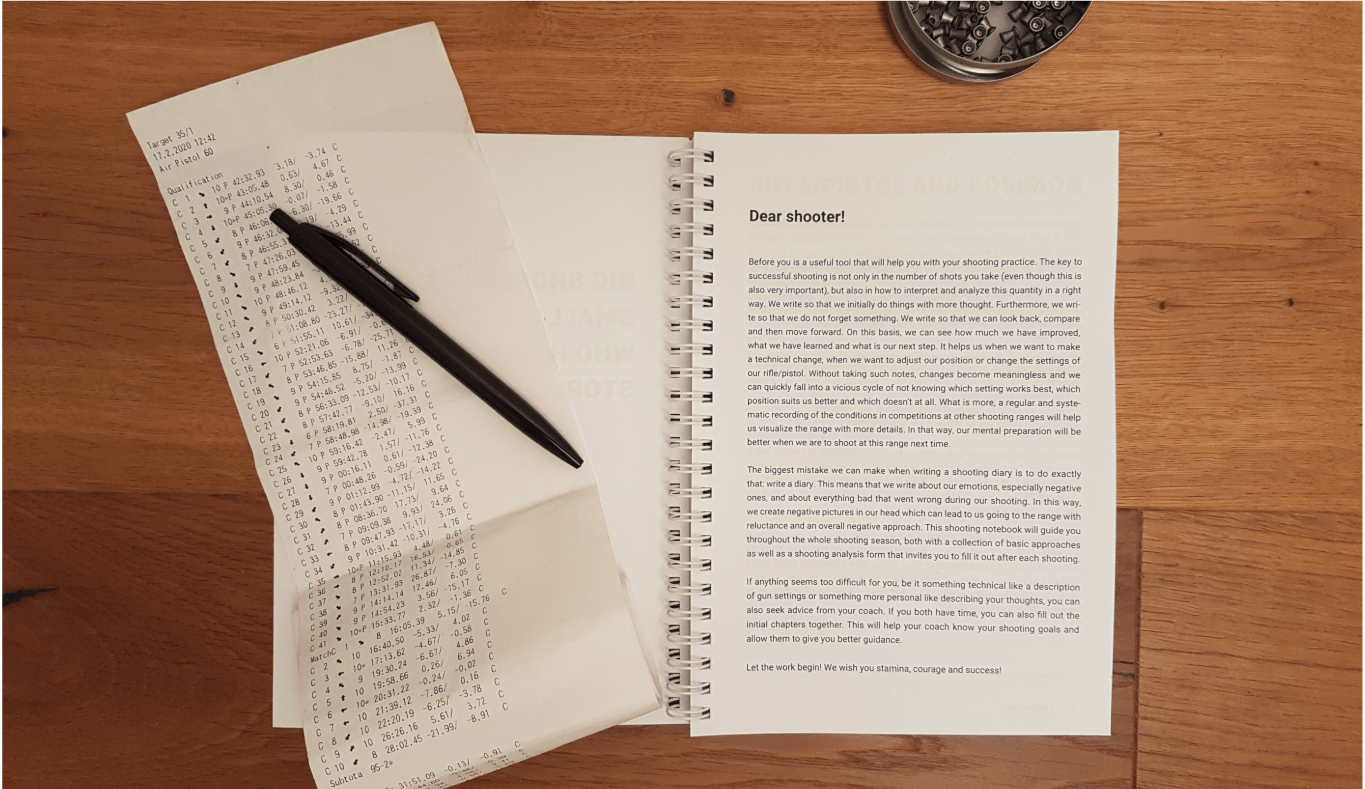 Target 35/1
17.2.2020 12:42
Air Pistol 60
Qualification
C 1 10 P 42:32.93 3.18/ -3.74 C
C 2 10*P 43:05.48 0.63/ 4.67 C
C 3 9 P 44:10.54 8.30/ 0.46 C
C 4 10*P 45:05.30 -0.07/ -1.58 C
C 5 8 P 46:06 6.30/ -19.66 C
C 6 9 P 46:32 -4.29 C
C 7 8 P 46:55 -13.44 C
C 8 7 P 47:26.03 C
C 9 9 P 47:59.45 C
C 10 9 P 48:23.84 C
C 11 10 P 48:46.12 C
C 12 9 P 49:14.12 C
C 13 8 P 50:30.42 3.22/
C 14 P 51:08.80 -23.27/
C 15 P 51:55.11 10.61/
C 16 10 P 52:21.06 -6.91/
C 17 7 P 52:53.63 -6.78/ -25.71 C
C 18 8 P 53:46.85 -15.88/ 11.26 C
C 19 9 P 54:15.85 8.75/ -1.87 C
C 20 9 P 54:48.52 -5.20/ -13.99 C
C 21 8 P 56:33.09 -12.53/ -10.17 C
C 22 8 P 57:42.77 -9.10/ 16.16 C
C 23 6 P 58:19.81 2.50/ -37.31 C
C 24 7 P 58:48.98 -14.98/ -19.39 C
C 25 10 P 59:16.42 -2.47/ 5.99 C
C 26 9 P 59:42.78 1.57/ -11.76 C
C 27 9 P 00:16.11 0.61/ -12.38 C
C 28 7 P 00:48.26 -0.59/ -24.20 C
C 29 9 P 01:12.99 -4.72/ -14.22 C
C 30 8 P 01:43.90 -11.15/ 11.65 C
C 31 8 P 08:36.70 17.73/ 9.64 C
C 32 7 P 09:09.38 9.93/ 24.06 C
C 33 8 P 09:47.93 -17.17/ 3.26 C
C 34 9 P 10:31.42 -10.31/ -4.76 C
C 35 10*P 11:15.93 4.48/ 0.61 C
C 36 8 P 12:10.17 16.53/ 0.65 C
C 37 8 P 12:52.02 11.34/ -14.85 C
C 38 7 P 13:31.93 26.87/ -7.30 C
C 39 9 P 14:14.14 12.46/ 6.05 C
C 40 9 P 14:54.23 3.56/ -15.17 C
C 41 10*P 15:33.77 2.32/ -1.36 C
MatchC 1 8 16:05.39 5.15/ -15.76 C
C 2 10 16:40.50 -5.33/ 4.02 C
C 3 10* 17:13.62 -4.67/ -0.58 C
C 4 9 19:30.24 -6.67/ 4.86 C
C 5 10 19:58.66 0.26/ 6.94 C
C 6 10* 20:31.22 -0.24/ -0.02 C
C 7 10 21:39.12 -7.86/ 0.16 C
C 8 10 22:20.19 -6.25/ -3.78 C
C 9 10 26:26.16 5.61/ 3.72 C
C 10 8 28:02.45 -21.99/ -8.91 C
Subtota 95-2*
31:51.09 -0.13/ -0.91 C
Dear shooter!
Before you is a useful tool that will help you with your shooting practice. The key to
successful shooting is not only in the number of shots you take (even though this is
also very important), but also in how to interpret and analyze this quantity in a right
way. We write so that we initially do things with more thought. Furthermore, we wri-
te so that we do not forget something. We write so that we can look back, compare
and then move forward. On this basis, we can see how much we have improved,
what we have learned and what is our next step. It helps us when we want to make
a technical change, when we want to adjust our position or change the settings of
our rifle/pistol. Without taking such notes, changes become meaningless and we
can quickly fall into a vicious cycle of not knowing which setting works best, which
position suits us better and which doesn't at all. What is more, a regular and syste-
matic recording of the conditions in competitions at other shooting ranges will help
us visualize the range with more details. In that way, our mental preparation will be
better when we are to shoot at this range next time.
The biggest mistake we can make when writing a shooting diary is to do exactly
that: write a diary. This means that we write about our emotions, especially negative
ones, and about everything bad that went wrong during our shooting. In this way,
we create negative pictures in our head which can lead to us going to the range with
reluctance and an overall negative approach. This shooting notebook will guide you
throughout the whole shooting season, both with a collection of basic approaches
as well as a shooting analysis form that invites you to fill it out after each shooting.
If anything seems too difficult for you, be it something technical like a description
of gun settings or something more personal like describing your thoughts, you can
also seek advice from your coach. If you both have time, you can also fill out the
initial chapters together. This will help your coach know your shooting goals and
allow them to give you better guidance.
Let the work begin! We wish you stamina, courage and success!